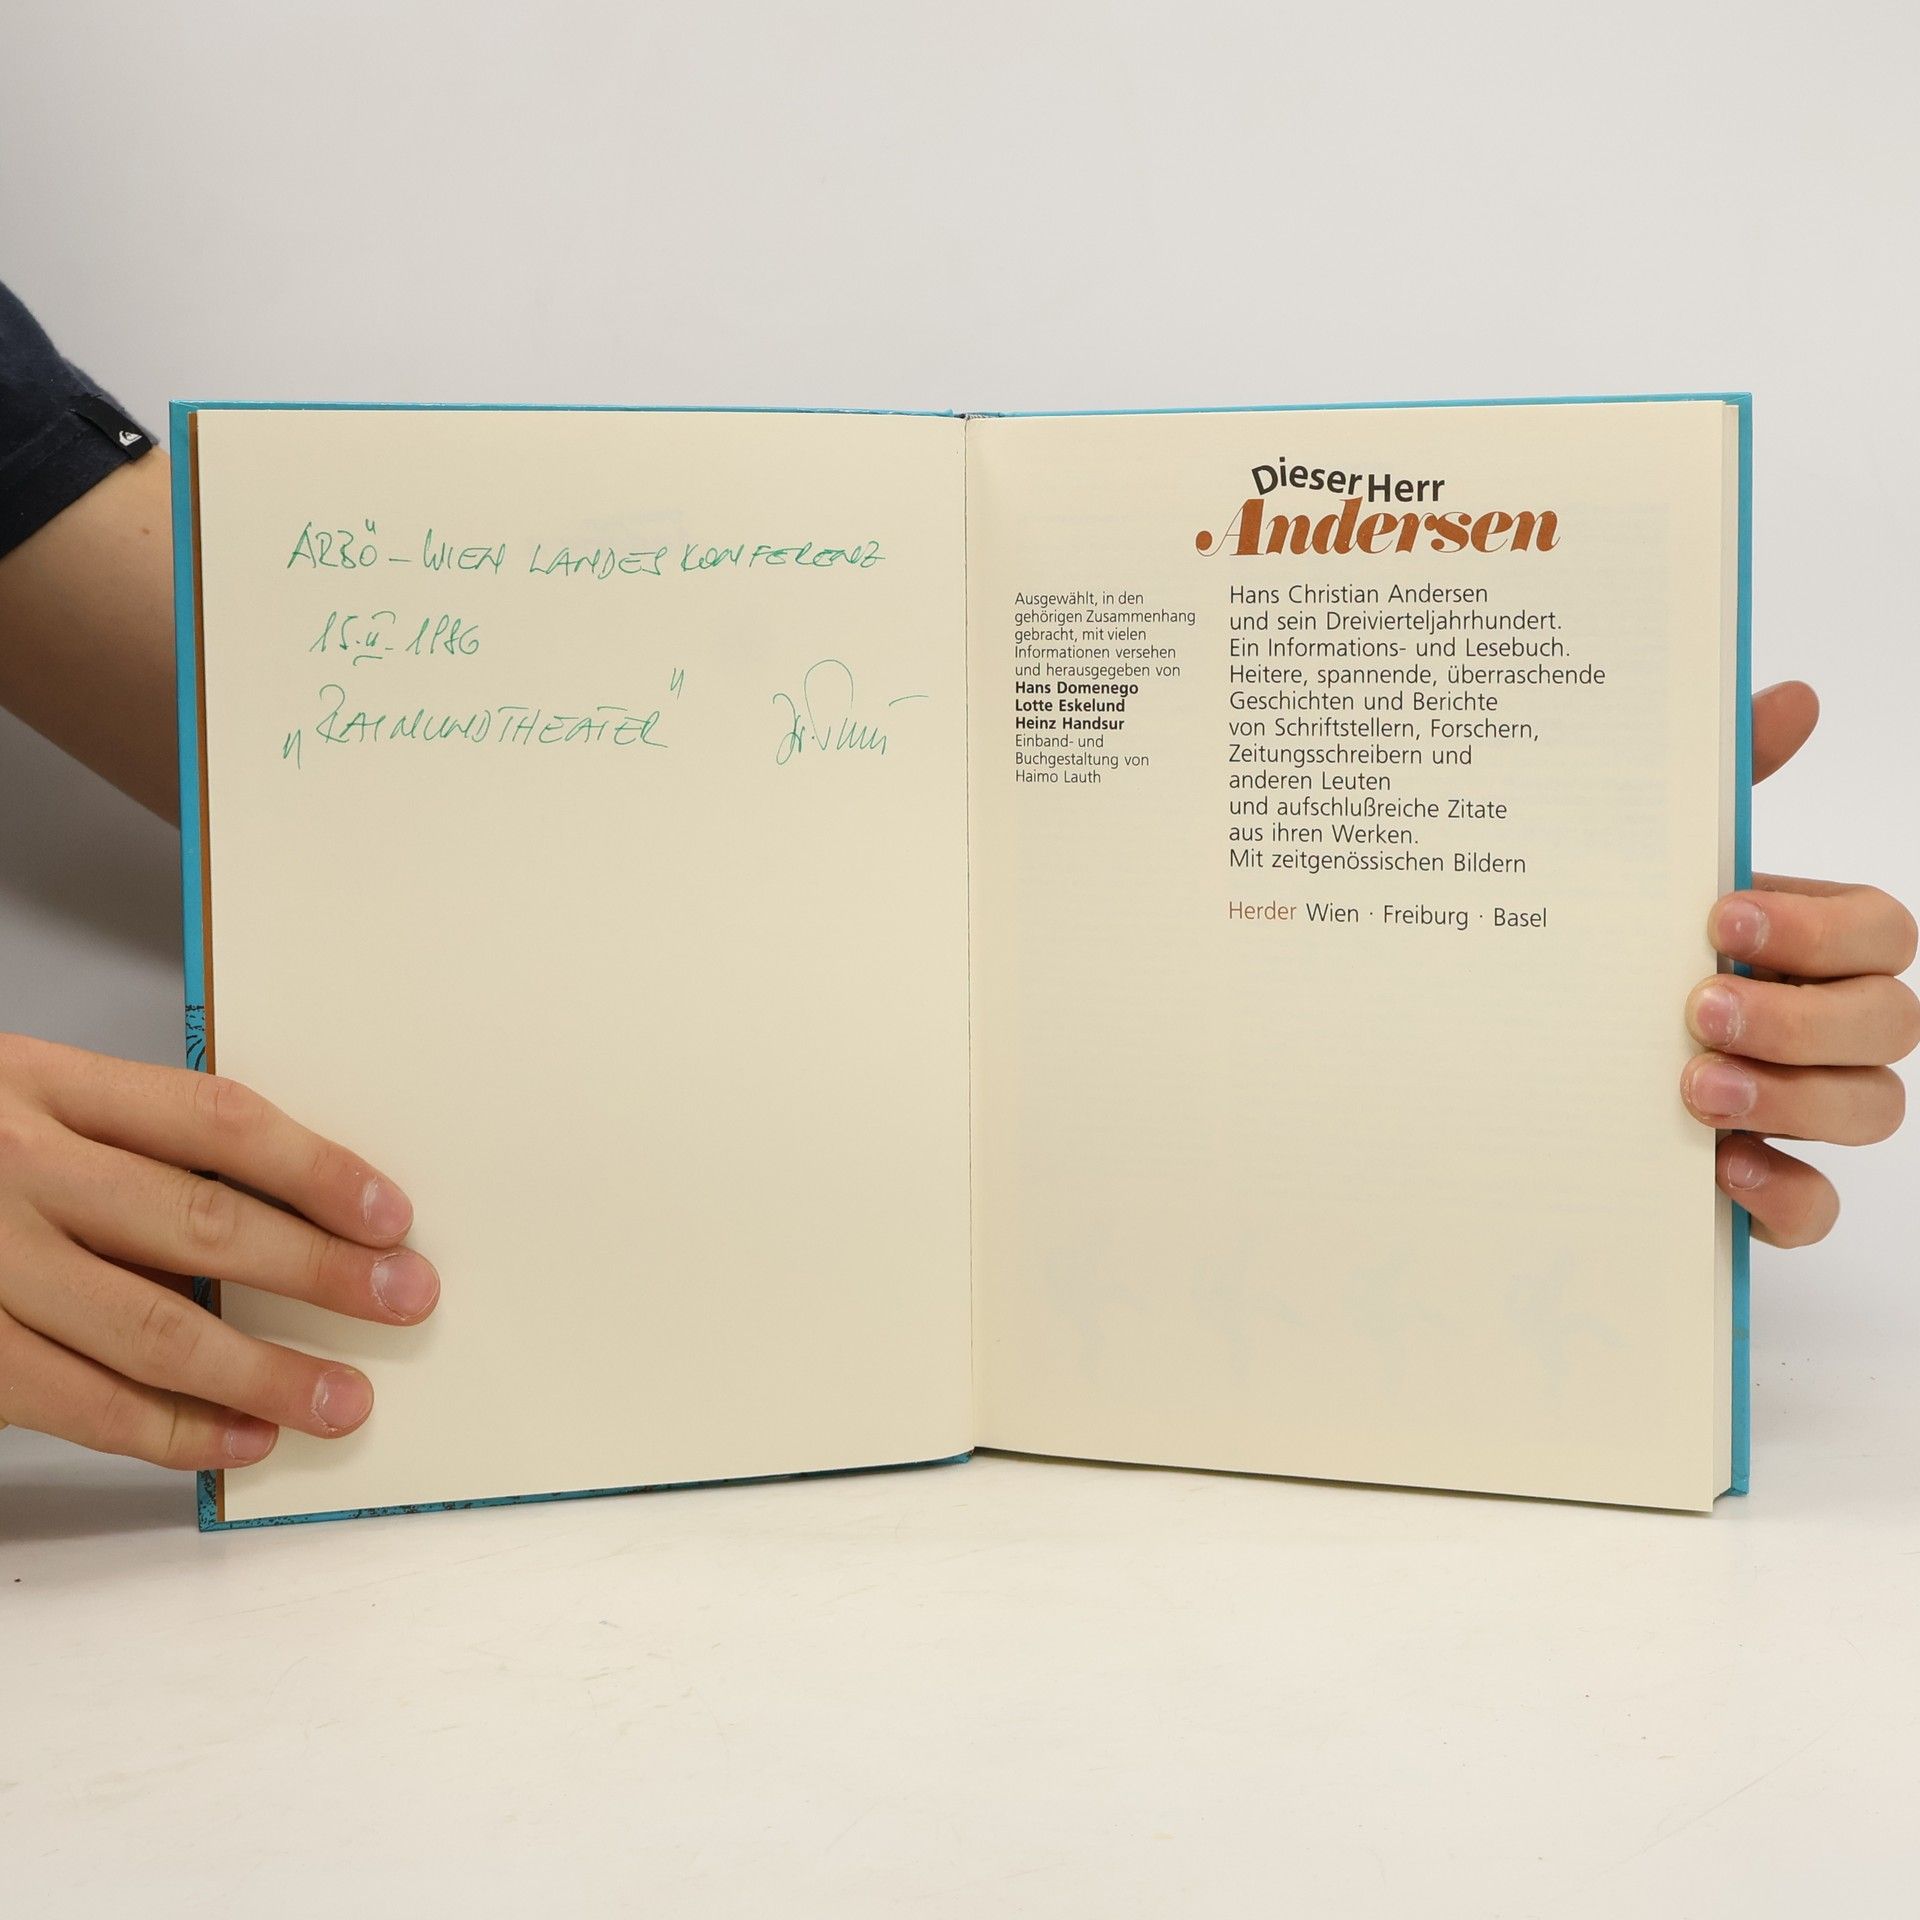 ARBÖ – WIEN LANDESKONFERENZ
15.II.1986
„RAIMUNDTHEATER"
Dieser Herr
Andersen
Ausgewählt, in den
gehörigen Zusammenhang
gebracht, mit vielen
Informationen versehen
und herausgegeben von
Hans Domenego
Lotte Eskelund
Heinz Handsur
Einband- und
Buchgestaltung von
Haimo Lauth
Hans Christian Andersen
und sein Dreivierteljahrhundert.
Ein Informations- und Lesebuch.
Heitere, spannende, überraschende
Geschichten und Berichte
von Schriftstellern, Forschern,
Zeitungsschreibern und
anderen Leuten
und aufschlußreiche Zitate
aus ihren Werken.
Mit zeitgenössischen Bildern
Herder Wien · Freiburg · Basel